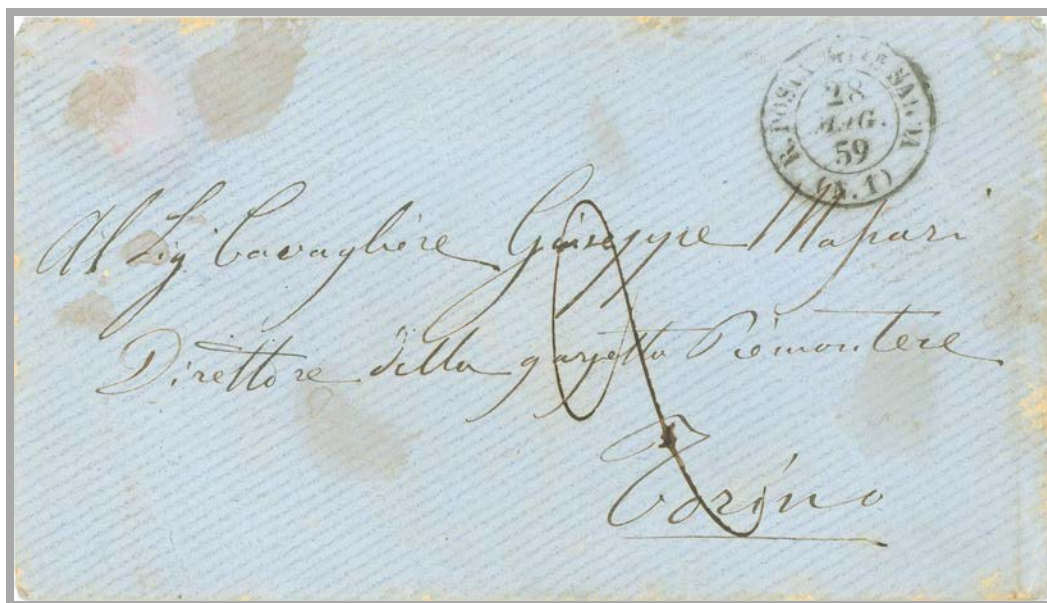 R. POSTA SARDA
28
MAG.
59
(N. 1)
Al Sig Cavagliere Giuseppe Massari
Direttore della gazzetta Piemontese
Torino